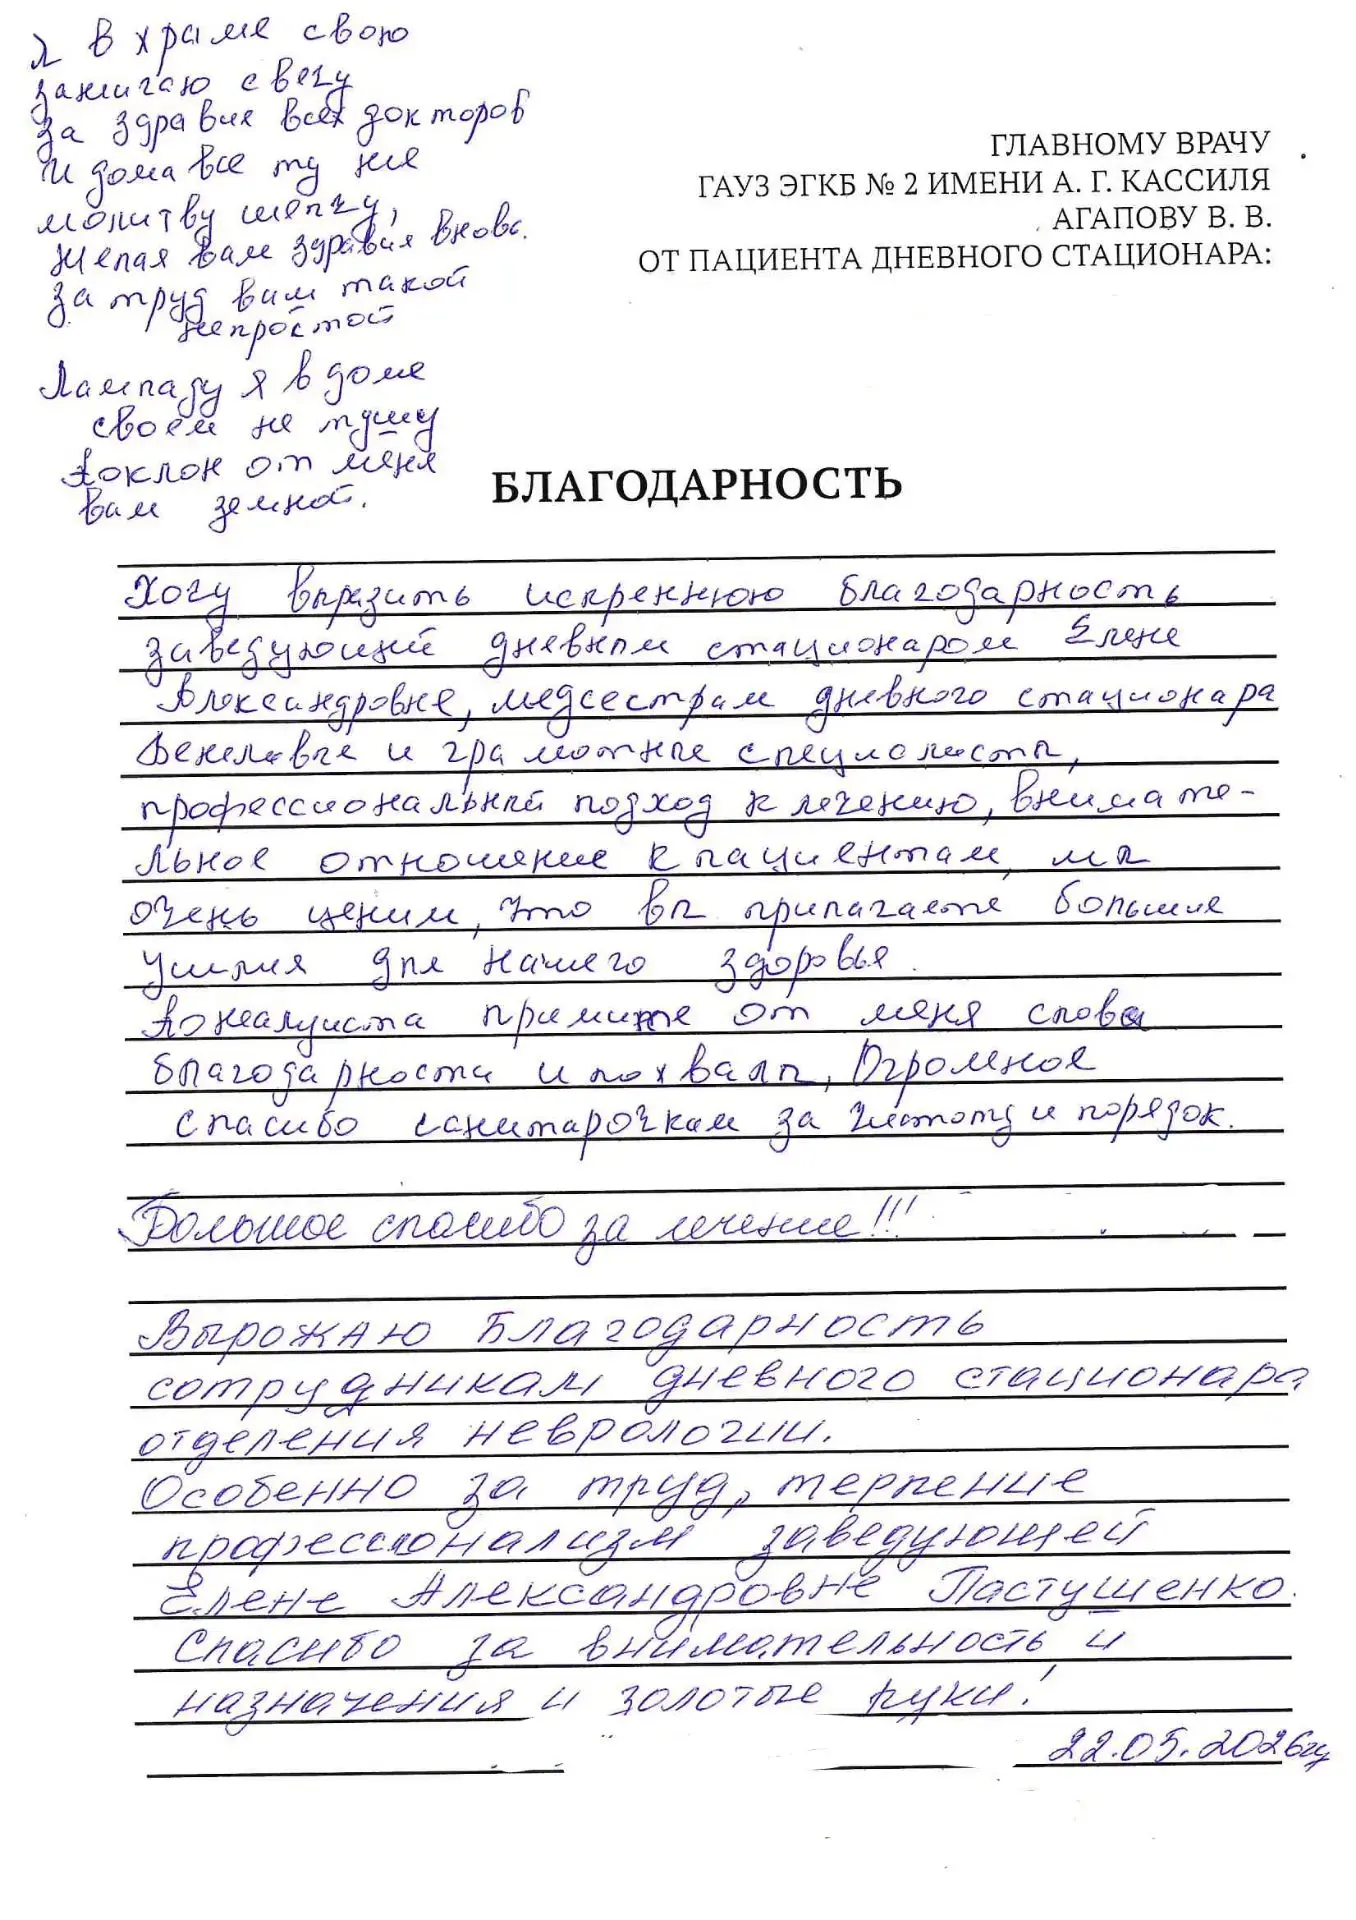 Я в храме свою
зажигаю свечу
за здравие всех докторов
И дома все ту же
молитву шепчу,
Желая вам здравия вновь.
за труд вам такой
непростой
Лампаду я в доме
своем не тушу
Поклон от меня
вам земной.
ГЛАВНОМУ ВРАЧУ
ГАУЗ ЭГКБ № 2 ИМЕНИ А. Г. КАССИЛЯ
АГАПОВУ В. В.
ОТ ПАЦИЕНТА ДНЕВНОГО СТАЦИОНАРА:
БЛАГОДАРНОСТЬ
Хочу выразить искреннюю благодарность
заведующий дневным стационаром Елене
Александровне, медсестрам дневного стационара
Вежливые и грамотные специалисты,
профессиональный подход к лечению, внимате-
льное отношение к пациентам, мы
очень ценим, что вы прилагаете большие
усилия для нашего здоровья.
Пожалуиста примите от меня слова
благодарности и похвалы, Огромное
спасибо санитарочкам за чистоту и порядок.
Большое спасибо за лечение!!!
Вырожаю Благодарность
сотрудникам дневного стационара
отделения неврологии.
Особенно за труд, терпение
професслонализм заведующей
Елене Александровне Пастушенко.
Спасибо за внимательность и
назначения и золотые руки!
22.05.2026гу